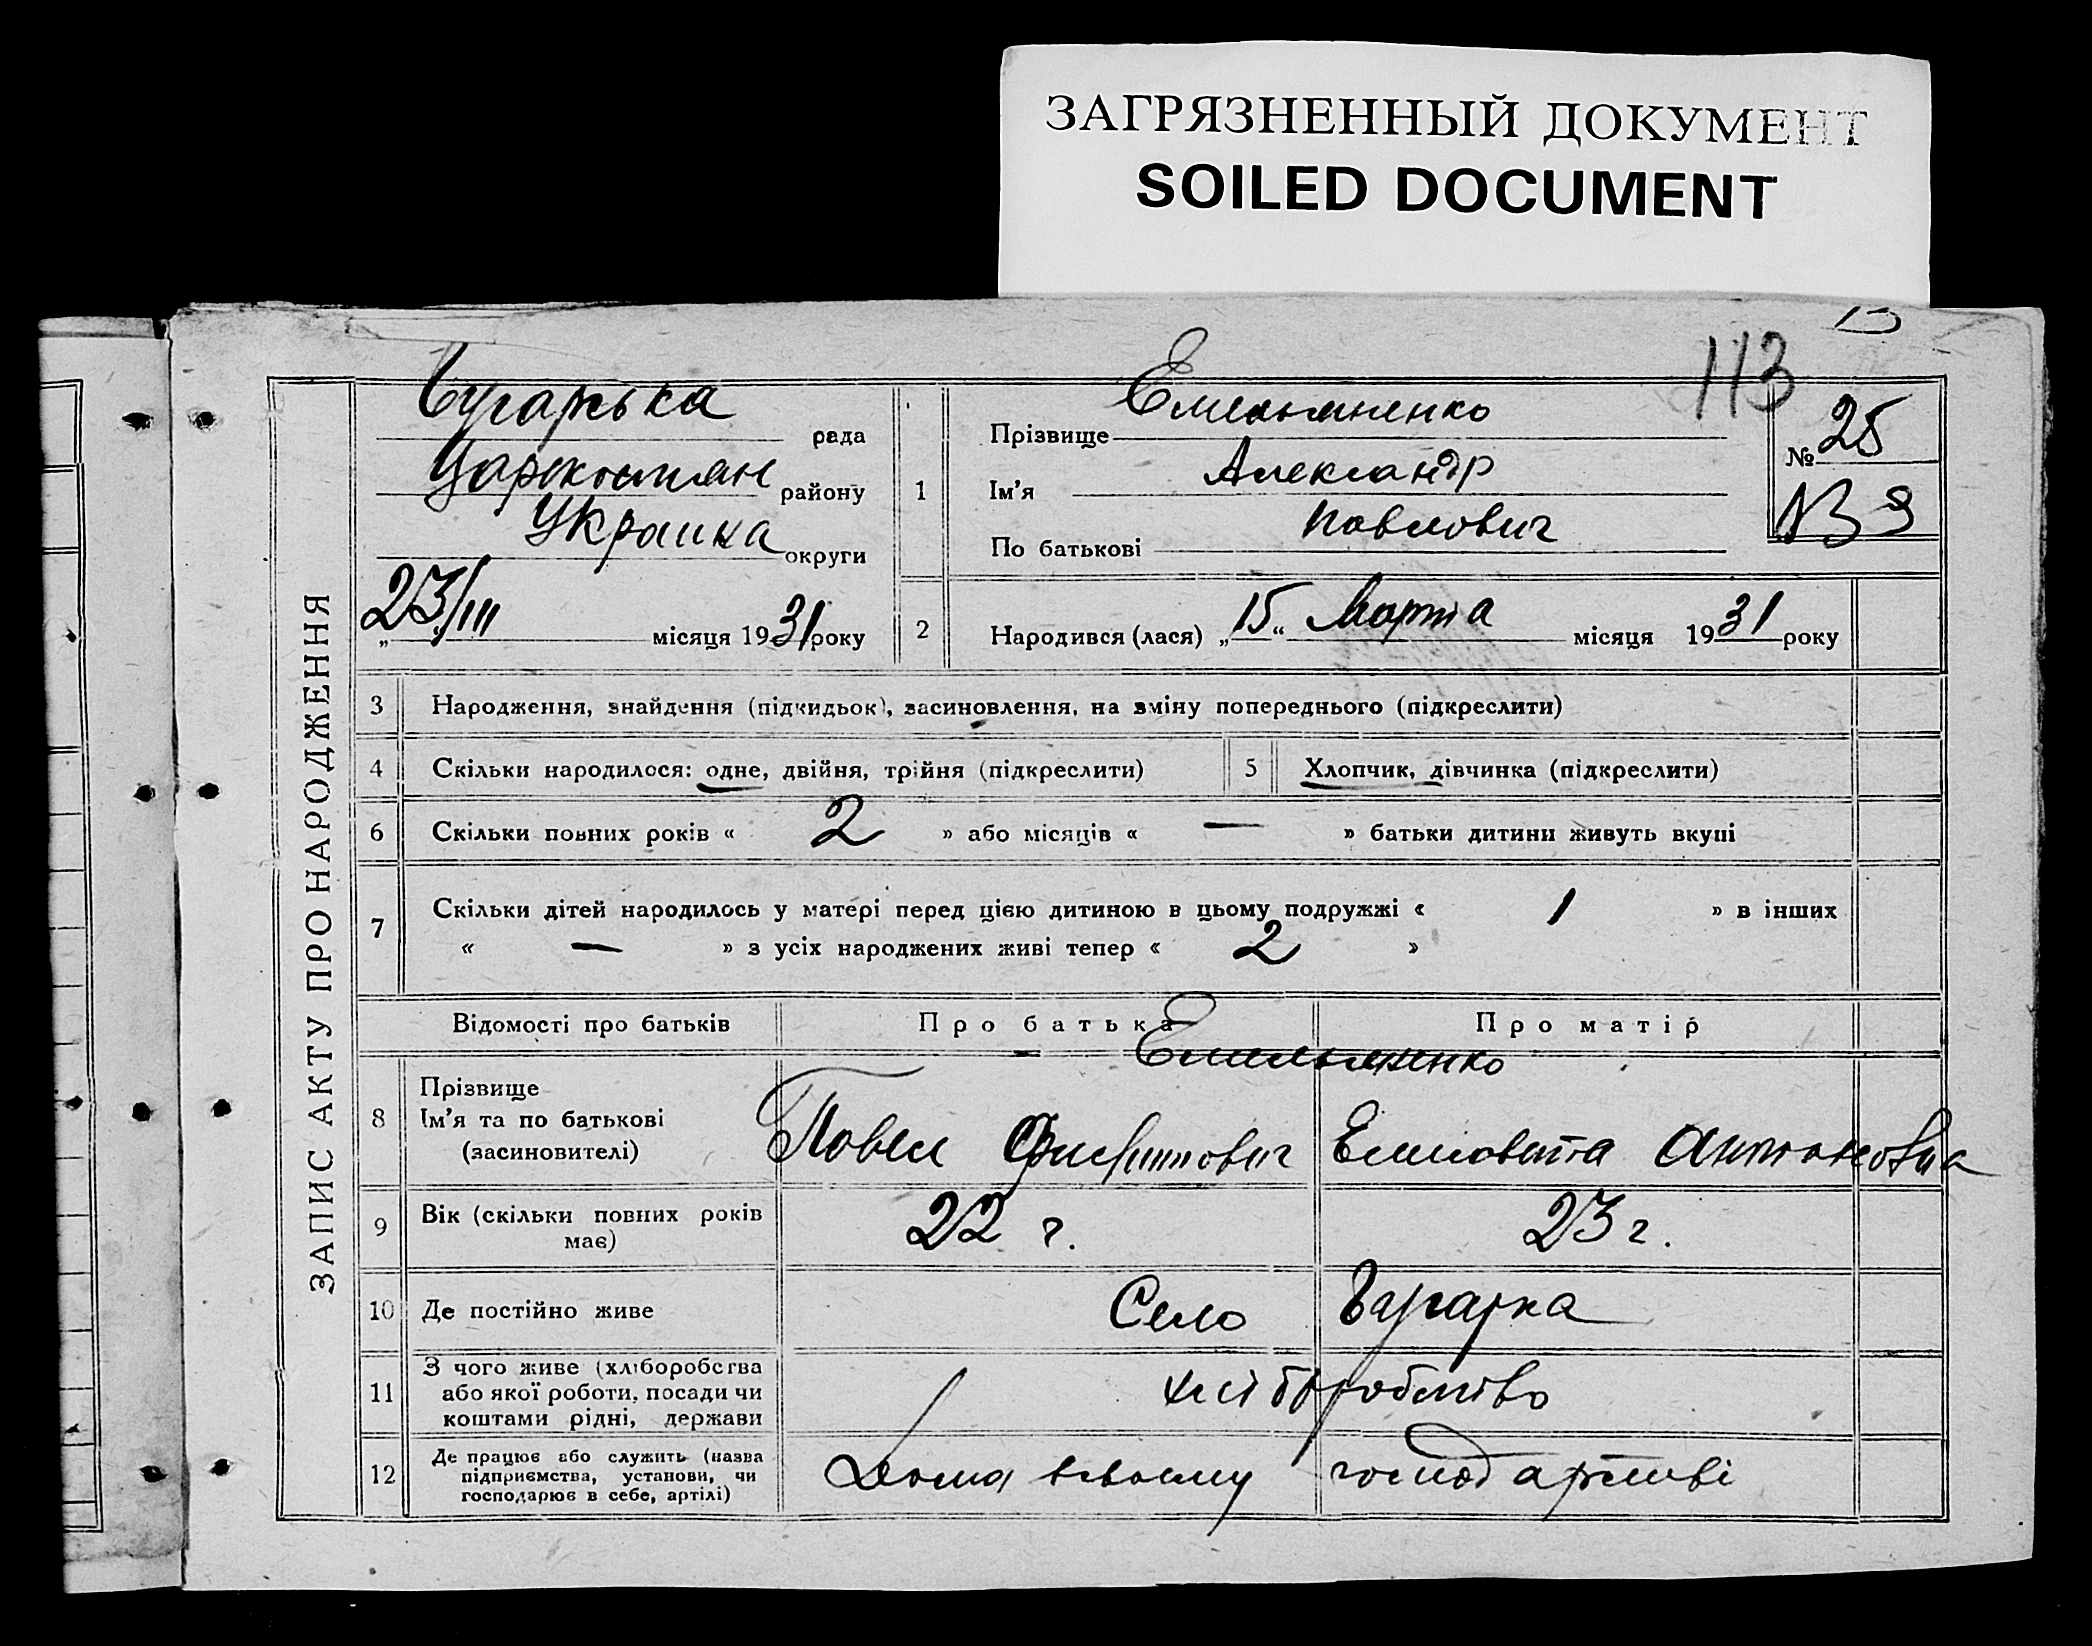 ЗАГРЯЗНЕННЫЙ ДОКУМЕНТ
SOILED DOCUMENT
113
ЗАПИС АКТУ ПРО НАРОДЖЕННЯ
рада
району
Украина округи
„23/III місяця 1931 року
1
Прізвище Емельяненко
Ім'я Александр
По батькові Павлович
№ 25
2 Народився (лася) „15“ Марта місяця 1931 року
3 Народження, знайдення (підкидьок), засиновлення, на зміну попереднього (підкреслити)
4 Скільки народилося: одне, двійня, трійня (підкреслити)
5 Хлопчик, дівчинка (підкреслити)
6 Скільки повних років « 2 » або місяців « — » батьки дитини живуть вкупі
7 Скільки дітей народилось у матері перед цією дитиною в цьому подружжі « 1 » в інших
« — » з усіх народжених живі тепер « 2 »
Відомості про батьків
Про батька
Про матір
8 Прізвище
Ім'я та по батькові
(засиновителі)
Емельяненко
Павел Филиппович
Елисовета Антоновна
9 Вік (скільки повних років
має)
22 г.
23 г.
10 Де постійно живе
Село Чугарка
11 З чого живе (хліборобства
або якої роботи, посади чи
коштами рідні, держави
хліборобство
12 Де працює або служить (назва
підприємства, установи, чи
господарює в себе, артілі)
Дома всвоему господарстві